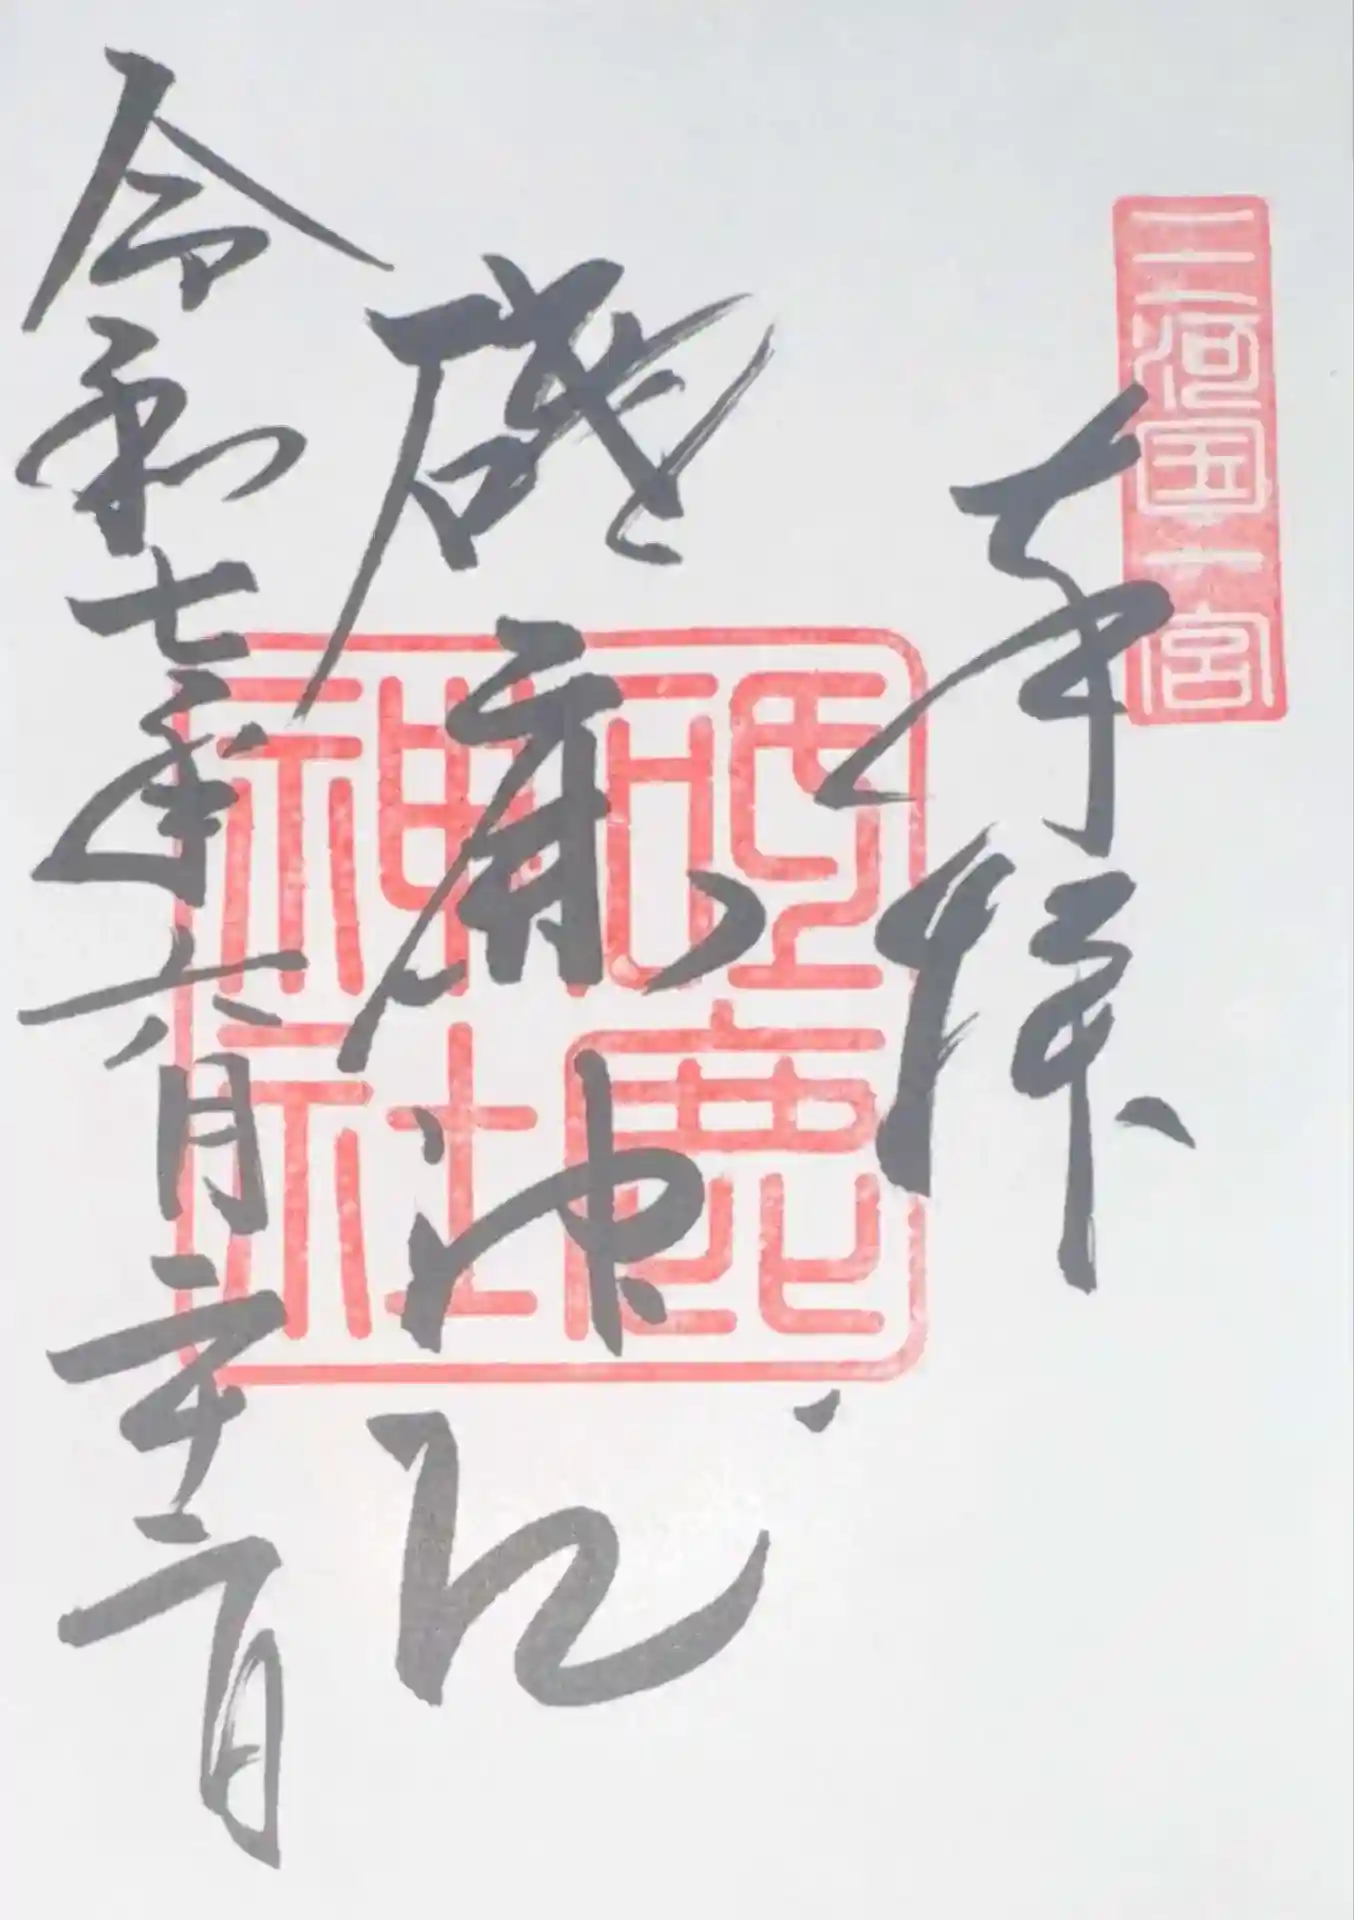 三河国一宮
奉拝
砥鹿神社
砥鹿神社
令和七年六月二十二日